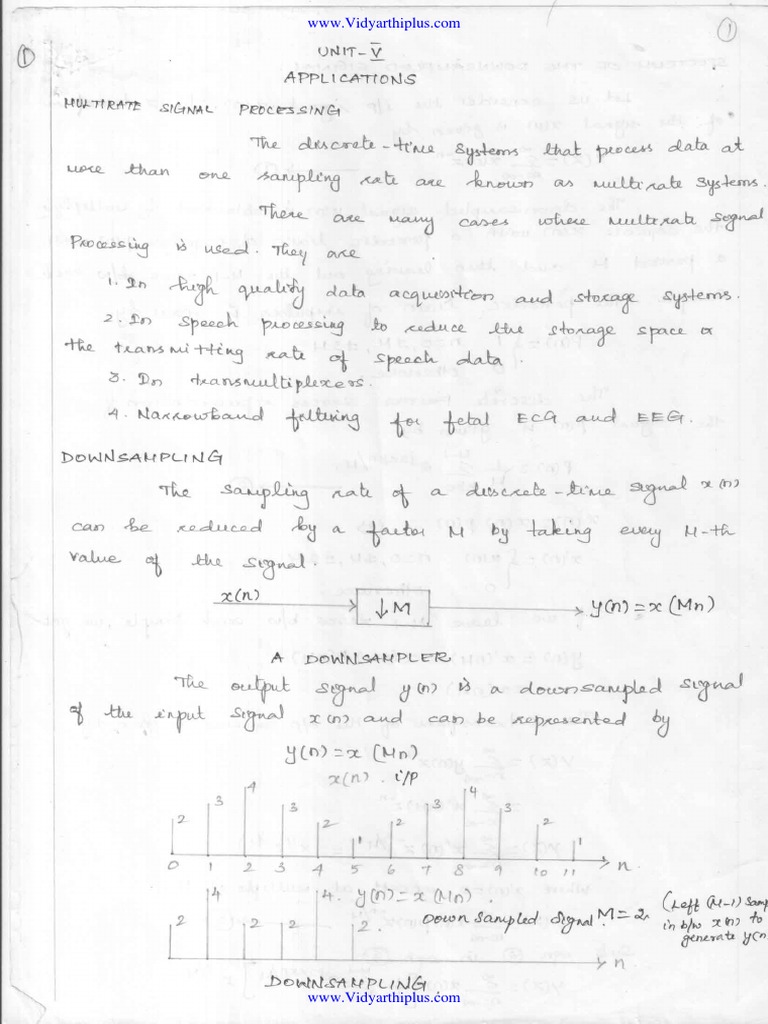 www.Vidyarthiplus.com
1
1
UNIT-V
APPLICATIONS
MULTIRATE SIGNAL PROCESSING
The discrete-time systems that process data at
more than one sampling rate are known as multirate systems.
There are many cases where multirate signal
Processing is used. They are
1. In high quality data acquisition and storage systems.
2. In speech processing to reduce the storage space or
the transmitting rate of speech data.
3. In transmultiplexers.
4. Narrowband filtering for fetal ECG and EEG.
DOWNSAMPLING
The sampling rate of a discrete-time signal x(n)
can be reduced by a factor M by taking every M-th
value of the signal.
x(n) ↓M y(n)=x(Mn)
A DOWNSAMPLER
The output signal y(n) is a downsampled signal
of the input signal x(n) and can be represented by
y(n)=x(Mn)
x(n). i/p
2 3 4 3 2 1 2 3 4 3 2 1
0 1 2 3 4 5 6 7 8 9 10 11 n
y(n)=x(Mn).
2 4 2 2 4 2
Down sampled signal M=2
(Left (M-1) samp
in b/w x(n) to
generate y(n
n
DOWNSAMPLING
www.Vidyarthiplus.com